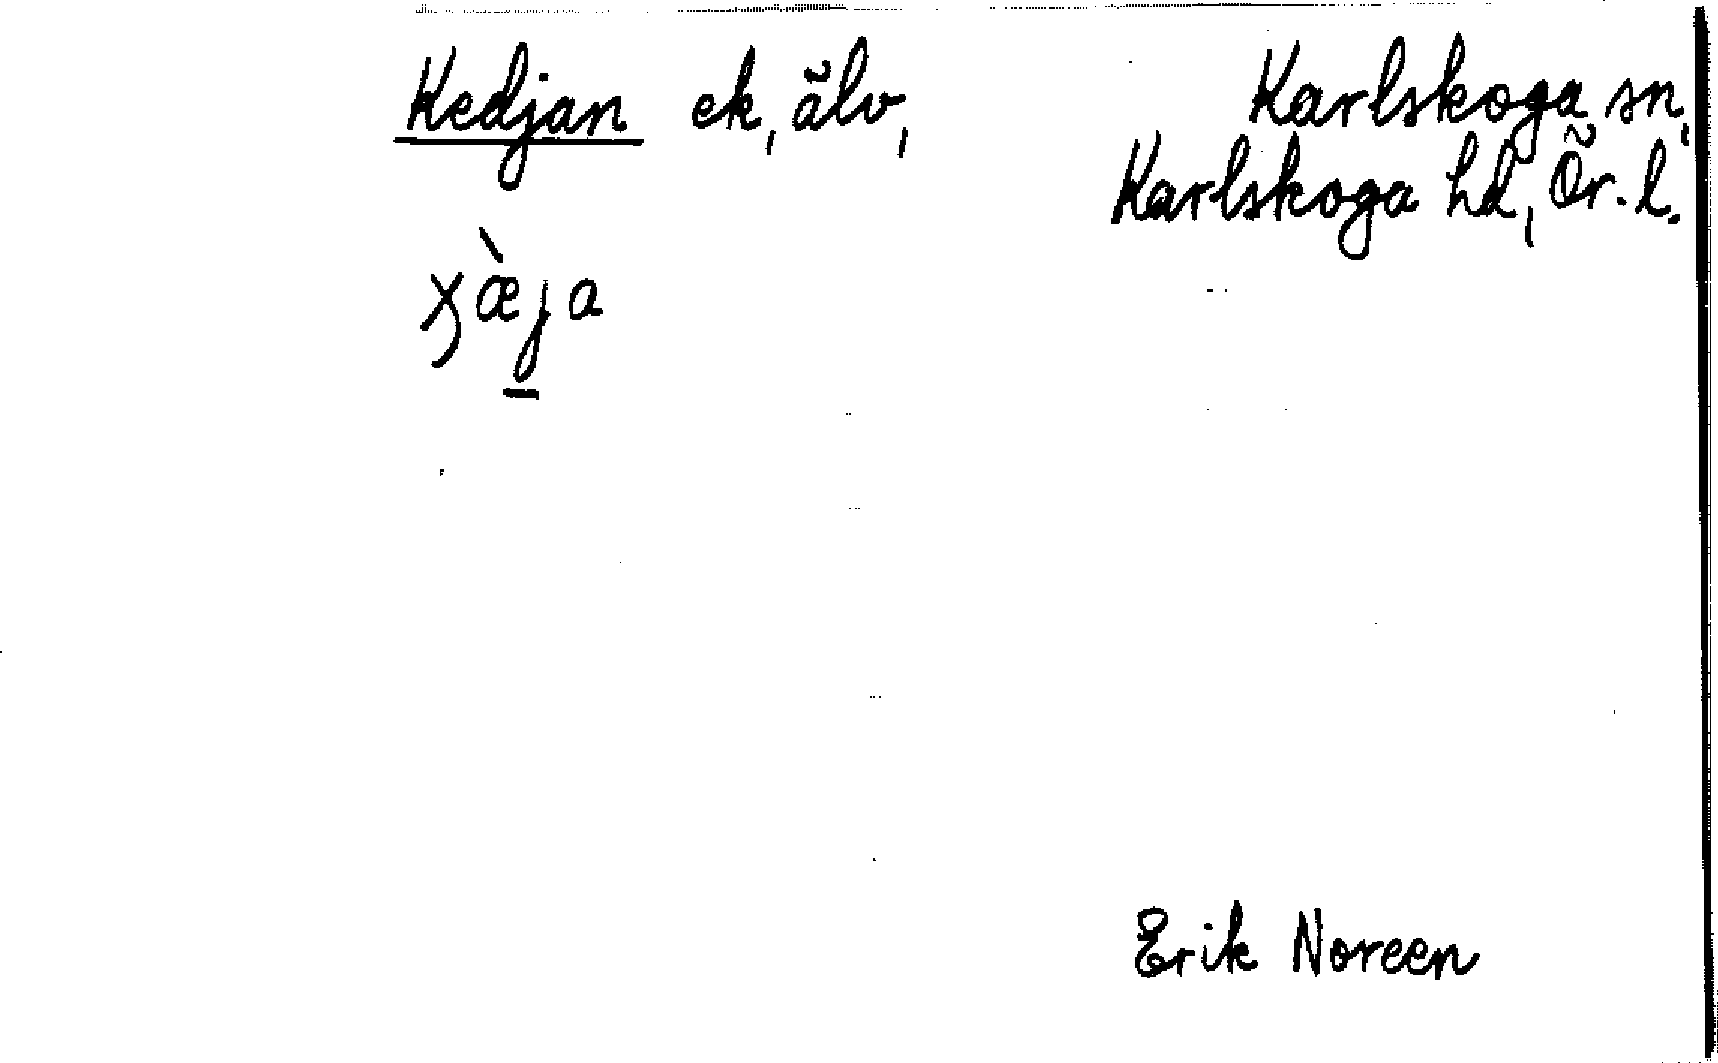 Kedjan ek, älv, Karlskoga sn,
Karlskoga hd, Ör. l.
ꭓæ̀j̲a
Erik Noreen